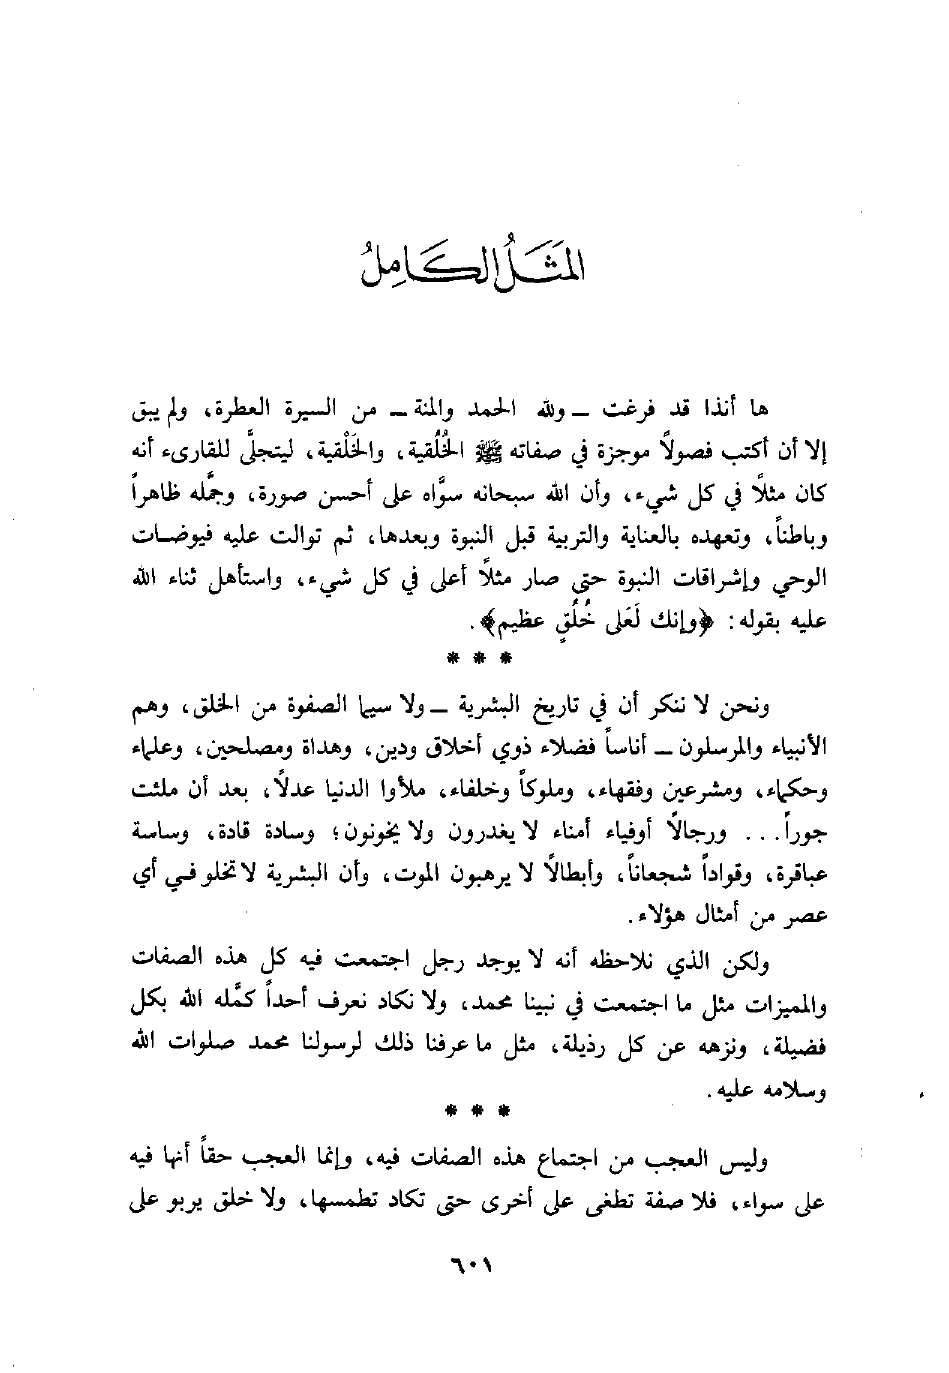 المَثَلُ الكَامِلُ
ها أنذا قد فرغت – ولله الحمد والمنة – من السيرة العطرة، ولم يبق
إلا أن أكتب فصولاً موجزة في صفاته ﷺ الخُلُقية، والخَلْقية، ليتجلَّى للقارىء أنه
كان مثلاً في كل شيء، وأن الله سبحانه سوَّاه على أحسن صورة، وجمَّله ظاهراً
وباطناً، وتعهده بالعناية والتربية قبل النبوة وبعدها، ثم توالت عليه فيوضات
الوحي وإشراقات النبوة حتى صار مثلاً أعلى في كل شيء، واستأهل ثناء الله
عليه بقوله: ﴿وإنك لَعَلى خُلُقٍ عظيم﴾.
* * *
ونحن لا ننكر أن في تاريخ البشرية – ولا سيما الصفوة من الخلق، وهم
الأنبياء والمرسلون – أناساً فضلاء ذوي أخلاق ودين، وهداة ومصلحين، وعلماء
وحكماء، ومشرعين وفقهاء، وملوكاً وخلفاء، ملأوا الدنيا عدلاً، بعد أن ملئت
جوراً... ورجالاً أوفياء أمناء لا يغدرون ولا يخونون؛ وسادة قادة، وساسة
عباقرة، وقواداً شجعاناً، وأبطالاً لا يرهبون الموت، وأن البشرية لا تخلو في أي
عصر من أمثال هؤلاء.
ولكن الذي نلاحظه أنه لا يوجد رجل اجتمعت فيه كل هذه الصفات
والمميزات مثل ما اجتمعت في نبينا محمد، ولا نكاد نعرف أحداً كمَّله الله بكل
فضيلة، ونزهه عن كل رذيلة، مثل ما عرفنا ذلك لرسولنا محمد صلوات الله
وسلامه عليه.
* * *
وليس العجب من اجتماع هذه الصفات فيه، وإنما العجب حقاً أنها فيه
على سواء، فلا صفة تطغى على أخرى حتى تكاد تطمسها، ولا خلق يربو على
٦٠١